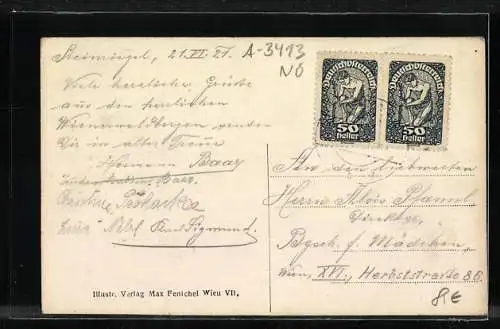 21.VI.21.
A-3413
NÖ
Viele herzliche Grüße
aus den herrlichen
Wienerwaldbergen senden
Dir in alter Treue
Hermann Baar
Baar.
Karl Sigmund.
Deutschösterreich
50
heller
Deutschösterreich
50
heller
An den
Herrn Alois Pfannl
Direktor,
Bgsch. f. Mädchen,
Wien, XVI., Herbststraße 86
8€
Illustr. Verlag Max Fenichel Wien VII,